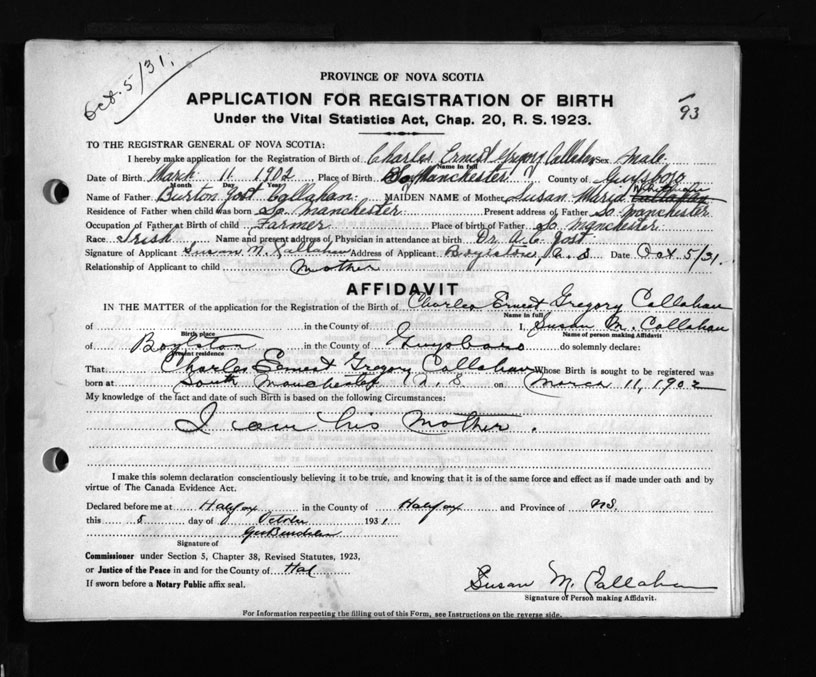 Oct. 5/31.
PROVINCE OF NOVA SCOTIA
APPLICATION FOR REGISTRATION OF BIRTH
93
Under the Vital Statistics Act, Chap. 20, R. S. 1923.
TO THE REGISTRAR GENERAL OF NOVA SCOTIA:
I hereby make application for the Registration of Birth of Charles Ernest Gregory Callahan Sex Male
Name in full
Date of Birth March 11 1902 Place of Birth So Manchester County of Guysboro
Month Day Year
Name of Father Burton Yost Callahan MAIDEN NAME of Mother Susan Maria
Residence of Father when child was born So Manchester Present address of Father So. Manchester
Occupation of Father at Birth of child Farmer Place of birth of Father So Manchester
Race Irish Name and present address of Physician in attendance at birth Dr. A. C. Jost
Signature of Applicant Susan M. Callahan Address of Applicant Boylston, N. S Date Oct 5/31.
Relationship of Applicant to child Mother
AFFIDAVIT
IN THE MATTER of the application for the Registration of the Birth of Charles Ernest Gregory Callahan
Name in full
of in the County of I, Susan M. Callahan
Birth place Name of person making Affidavit
of Boylston in the County of Guysboro do solemnly declare:
Present residence
That Charles Ernest Gregory Callahan Whose Birth is sought to be registered was
born at South Manchester N. S on March 11, 1902
My knowledge of the fact and date of such Birth is based on the following Circumstances:
I am his Mother.
I make this solemn declaration conscientiously believing it to be true, and knowing that it is of the same force and effect as if made under oath and by
virtue of The Canada Evidence Act.
Declared before me at Halifax in the County of Halifax and Province of NS.
this 5 day of October 1931
Geo
Signature of
Commissioner under Section 5, Chapter 38, Revised Statutes, 1923,
or Justice of the Peace in and for the County of Hal
If sworn before a Notary Public affix seal.
Susan M. Callahan
Signature of Person making Affidavit.
For Information respecting the filling out of this Form, see Instructions on the reverse side.